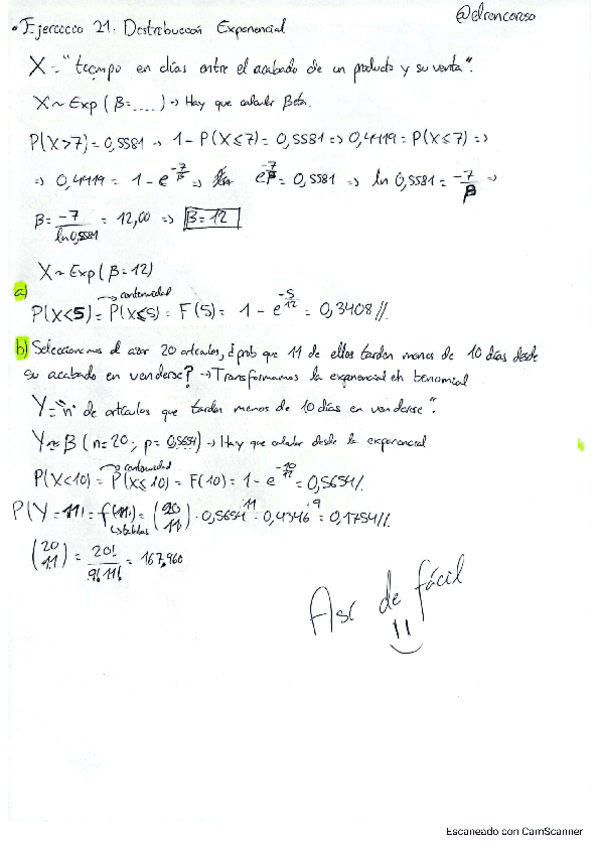 @elrencoroso
• Ejercicio 21. Distribución Exponencial
X = "tiempo en días entre el acabado de un producto y su venta".
X ~ Exp (β = ....) → Hay que calcular Beta.
P(X>7) = 0,5581 → 1 - P(X≤7) = 0,5581 => 0,4419 = P(X≤7) =>
=> 0,4419 = 1 - e^(-7/β) => e^(-7/β) = 0,5581 => ln 0,5581 = -7/β =>
β = -7/ln 0,5581 = 12,00 => β = 12
X ~ Exp (β = 12)
a)
→ continuidad
P(X<5) = P(X≤5) = F(5) = 1 - e^(-5/12) = 0,3408//
b) Seleccionamos al azar 20 artículos, ¿prob que 11 de ellos tarden menos de 10 días desde
su acabado en venderse? → Transformamos la exponencial en binomial
Y = "nº de artículos que tardan menos de 10 días en venderse".
Y ~ B (n = 20; p = 0,5654) → Hay que calcular desde la exponencial
→ continuidad
P(X<10) = P(X≤10) = F(10) = 1 - e^(-10/12) = 0,5654//
P(Y = 11) = f(11) = (20 11) · 0,5654^11 · 0,4346^9 = 0,1754//
↳ tablas
(20 11) = 20!/9!11! = 167,960
Así de fácil
Escaneado con CamScanner